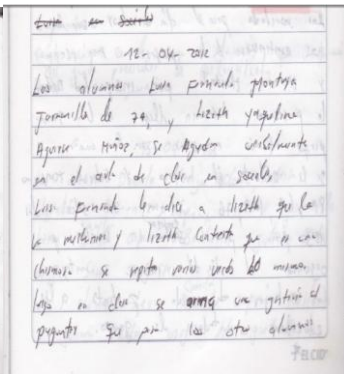 12-04-2012
Los alumnos Luisa Fernanda Montoya
Jaramillo de 7A, y Lizeth Yaqueline
Aguirre Muñoz, se Agreden verbalmente
en el aula de clase en sociales,
Luisa Fernanda le dice a lizeth que la
y lizeth contesta que es una
chismosa se repite varias veces lo mismo.
luego en clase se arma una gritería el
que pasa los otros alumnos